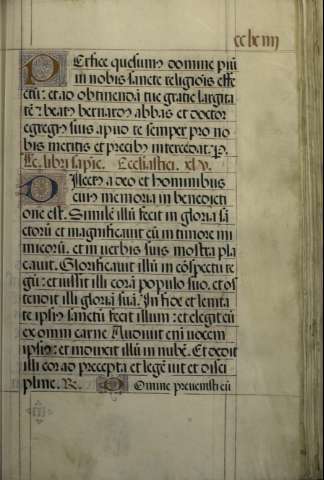 cclxiiij
Perfice quesum9 domine piū
in nobis sancte religiōis effe
ctū: et ad obtinendā tue gratie largita
tē: beat9 bernard9 abbas et doctor
egregi9 suis apud te semper pro no
bis meritis et precib9 intercedat. P.
Lc. libri sapie. Ecclesiastici. xlv.
Dilect9 a deo et hominibus
cui9 memoria in benedicti
one est. Similē illū fecit in gloria sā
ctorū et magnificauit eū in timore ini
micorū: et in uerbis suis mōstra pla
cauit. Glorificauit illū in cōspectu re
gū: et iussit illi corā populo suo, et os
tendit illi gloriā suā. In fide et lenita
te ipsi9 sanctū fecit illum: et elegit eū
ex omni carne Audiuit enī uocem
ipsi9: et induxit illū in nubē. Et dedit
illi cor ad precepta et legē uite et disci
pline. R. Domine preuenisti eū